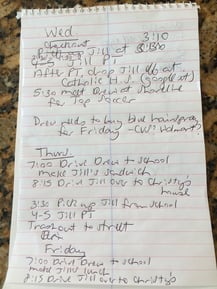 Wed 3:10
Pick up Jill at
4-5 Jill PT
After PT, drop Jill off at
Catholic H.S.
5:30 meet Drew at
for Top Soccer
Drew needs to buy blue hairspray
for Friday - CVS? Walmart?
Thurs
7:00 Drive Drew to school
make Jill's sandwich
8:15 Drive Jill over to Christy's
house
3:30 Pick up Jill from school
4-5 Jill PT
Trash out to street
Friday
7:00 Drive Drew to school
make Jill's lunch
8:15 Drive Jill over to Christy's